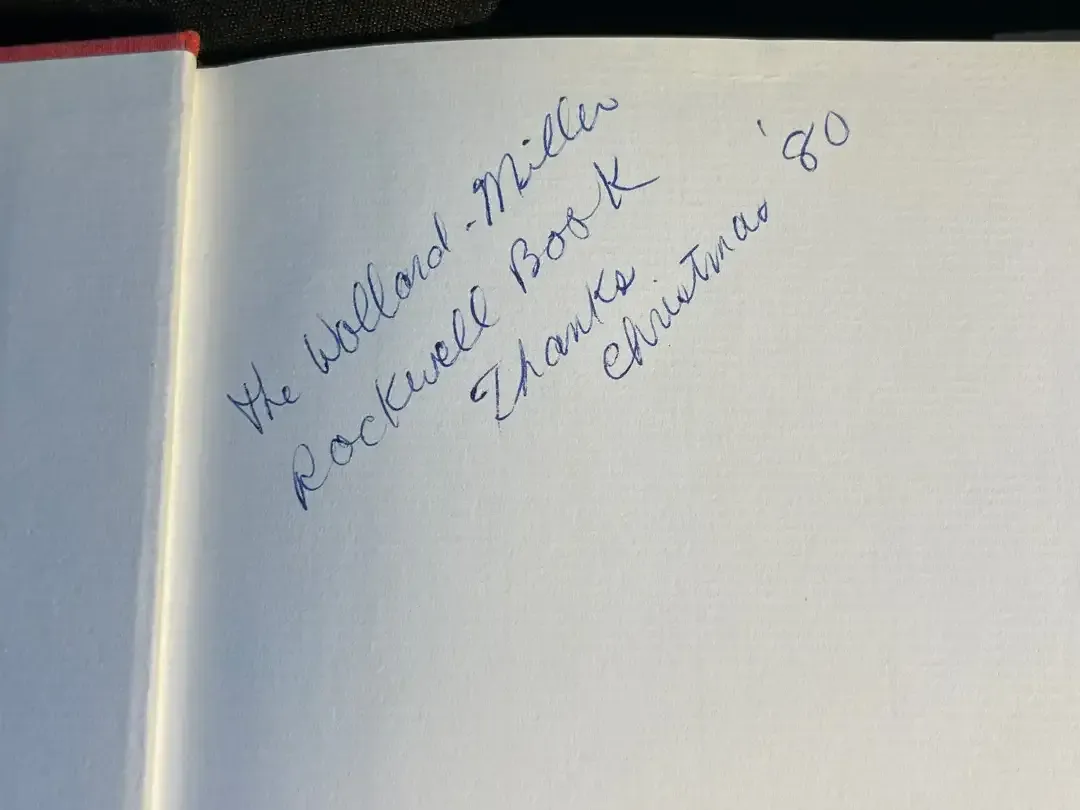 The Wollard-Miller
Rockwell Book
Thanks
Christmas '80